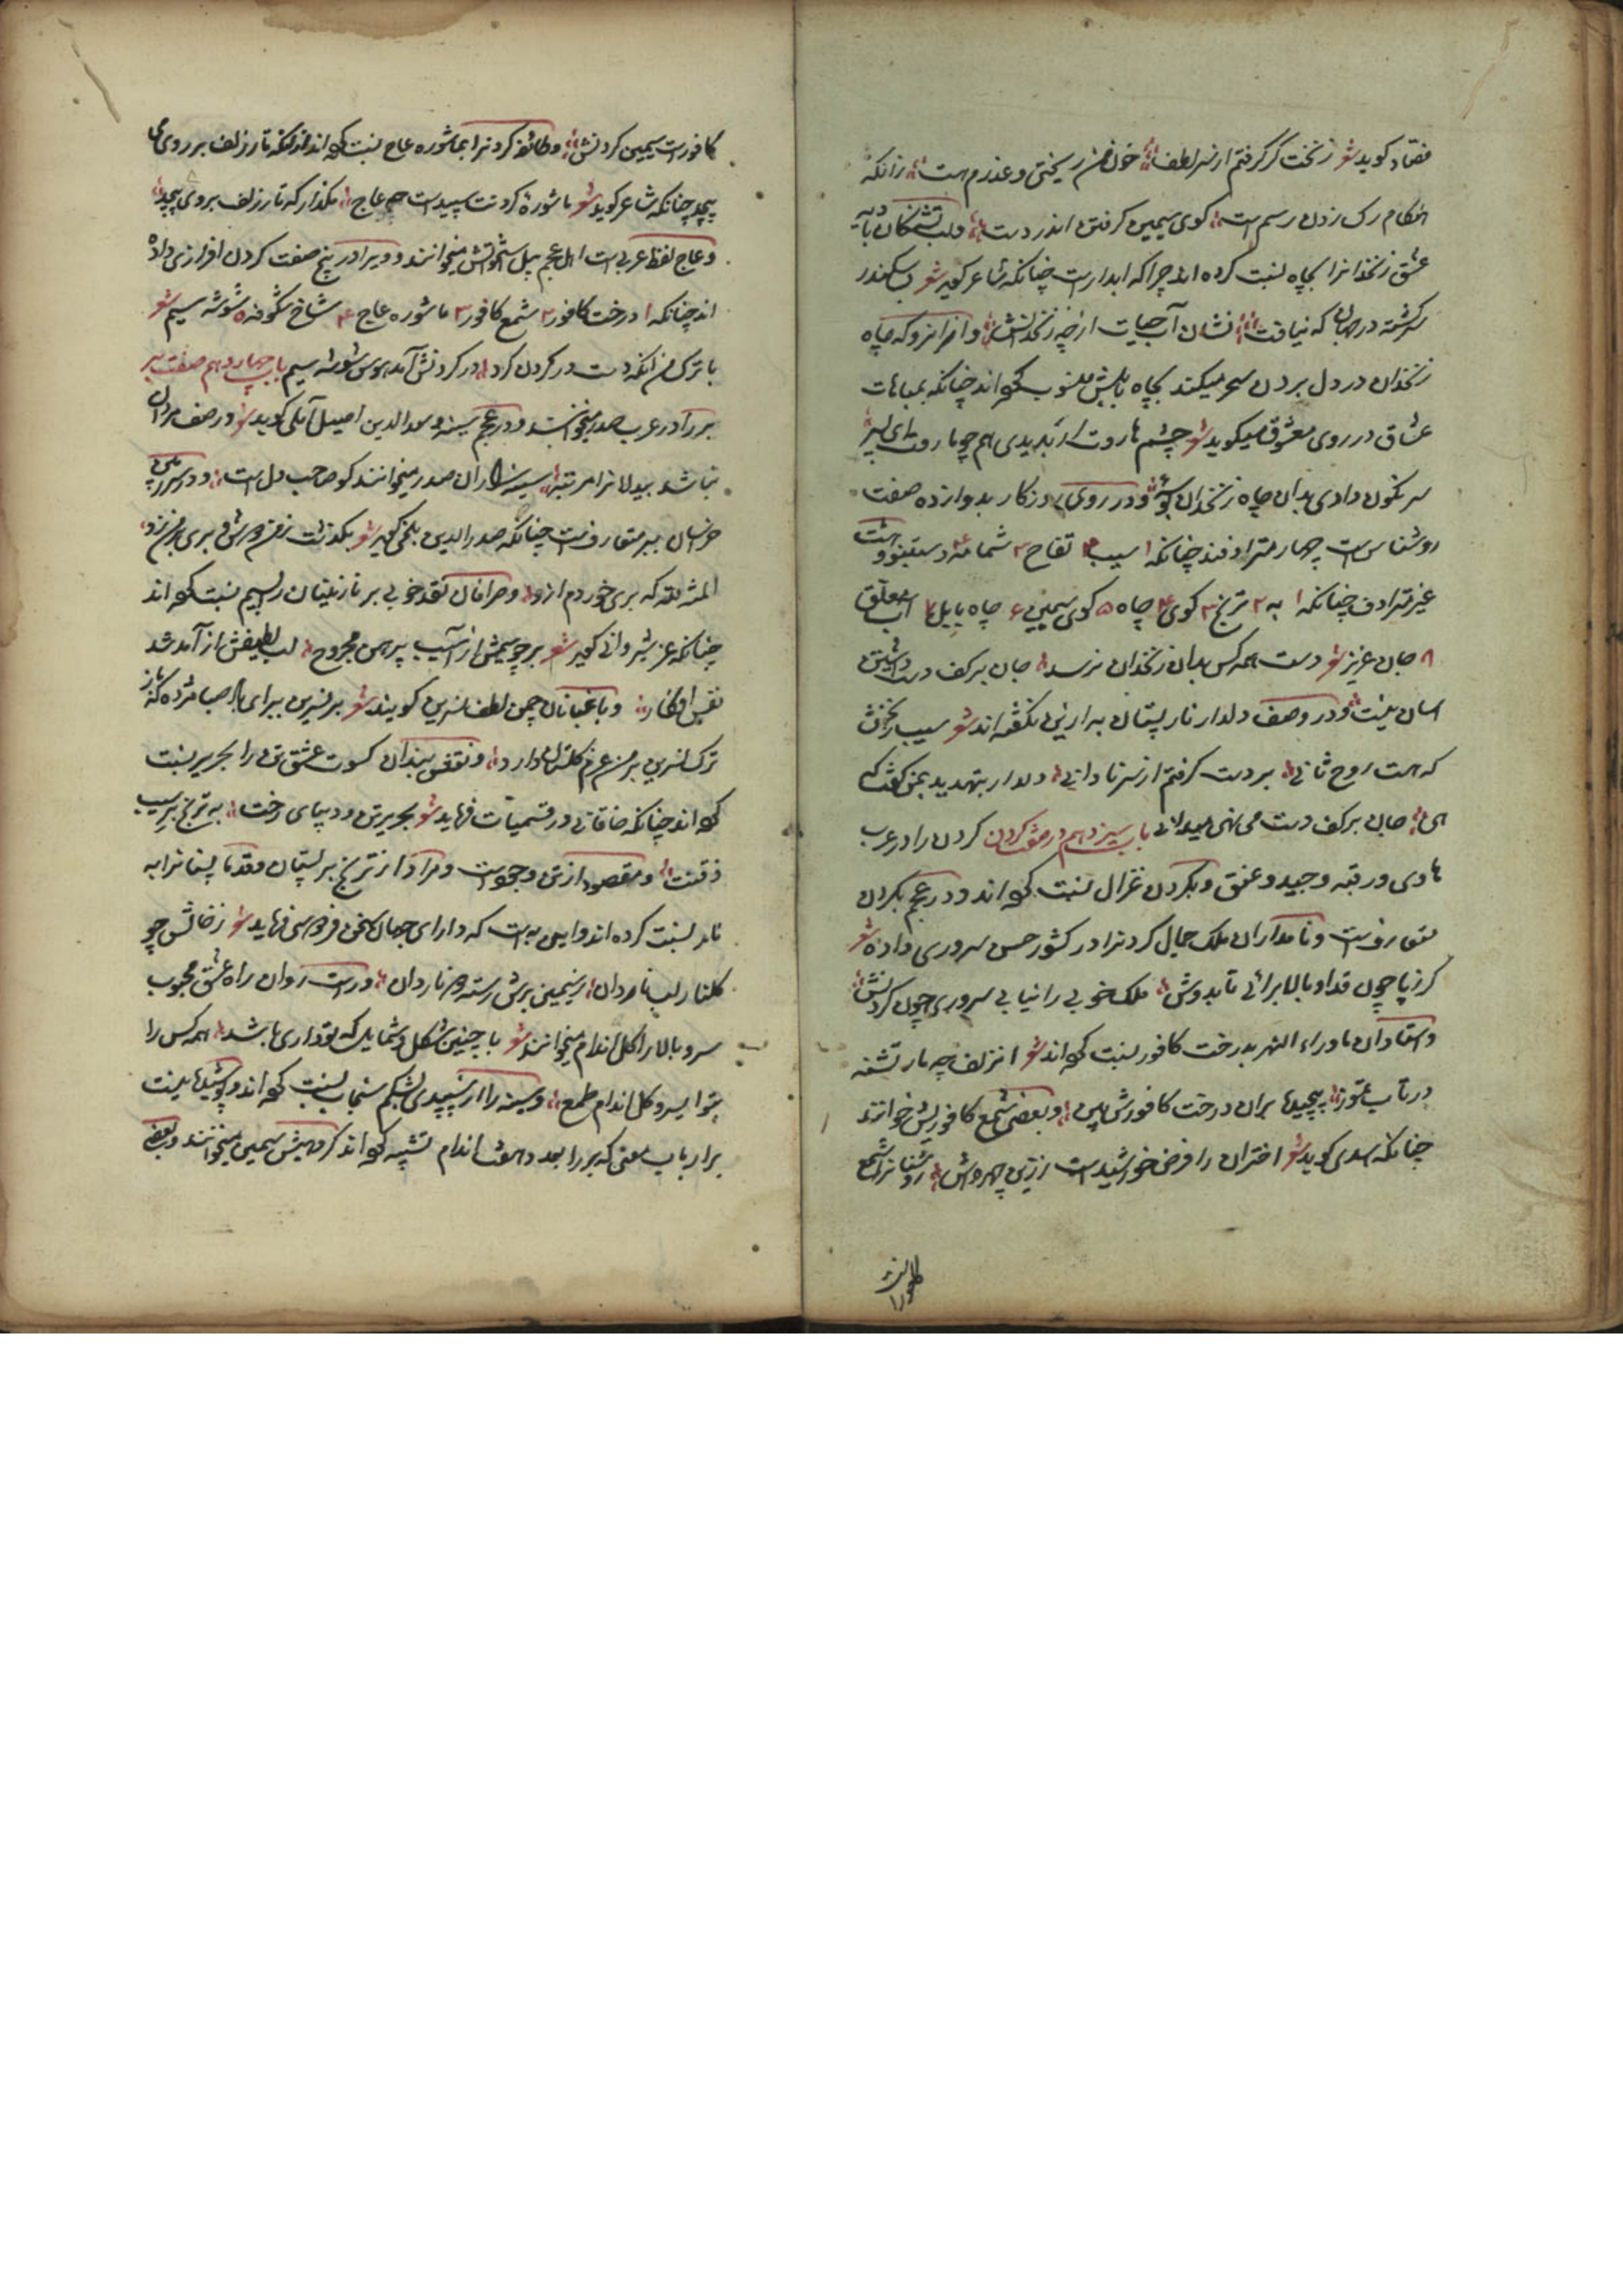 فصاد کوید شعر زنخت کر کرفتم از سر لطف خون من ریختی و عذرم هست زانکه
هنکام رک زدن رسم است کوی سیمین کرفتن اندر دست و لب تشنکان بادیه
عشق زنخدانرا بچاه نسبت کرده اند چرا که ابدارست چنانکه شاعر کوید شعر سکندر
سرکشته در جهان که نیافت نشان آب حیات از چه زنخدانش و از انرو که چاه
زنخدان در دل بردن سحر میکند بچاه بابلش منسوب کرده اند چنانکه بمباهات
عشاق در روی معشوق میکوید شعر چشم هاروت ار بدیدی هم چو ماروت ای پسر
سرنکون دادی بدان چاه زنخدان بوسه و در روی روزکار بدوازده صفت
روشناس است چهار مترادفند چنانکه ۱ سیب ۲ تفاح ۳ شمامه ۴ دستنبو و هشت
غیر مترادف چنانکه ۱ به ۲ ترنج ۳ کوی ۴ چاه ۵ کوی سیمین ۶ چاه بابل ۷ آب معلق
۸ جان عزیز شعر دست همه کس بدان زنخدان نرسد جان بر کف دست داشتن
اسان نیست و در وصف دلدار نار پستان به ازین نکفته اند شعر سیب زنخش
که هست روح ثانی بر دست کرفتم از سر نادانی دلدار بتهدید بمن کفت که
هی جان بر کف دست می نهی میدانی باب سیزدهم در صفت کردن کردن را در عرب
هادی و رقبه و جید و عنق و بکردن غزال نسبت کرده اند و در عجم بکردن
متعارفست و نامداران ملک جمال کردنرا در کشور حسن سروری داده شعر
کر ز پا چون قد او بالا برائی تا بدوش ملک خوبی را نیابی سروری چون کردنش
و استادان ماوراء النهر بدرخت کافور نسبت کرده اند شعر از زلف چه مار تشنه
در تاب تموز پیچیدها بران درخت کافورش بین و بعضی شمع کافوریش خوانند
چنانکه اسدی کوید شعر اختران را قرض خورشیدست از زرین چهروش روشنانرا شمع
کافورست سیمین کردنش و طائفه کردنرا بماشوره عاج نسبت کرده اند زانکه تار زلف بر روی می
پیچد چنانکه شاعر کوید شعر ماشوره کردنت سپیدست چو عاج مکذار که تار زلف بروی پیچد
و عاج لفظ عربی است اهل عجم پیل استخوانش میخوانند و ویرا در پنج صفت کردن افرازی داده
اند چنانکه ۱ درخت کافور ۲ شمع کافور ۳ ماشوره عاج ۴ شاخ شکوفه ۵ شوشه سیم شعر
با ترک من انکه دست در کردن کرد در کردنش آمد هوس شوشه سیم باب چهاردهم صفت بر
بر را در عرب صدر میخوانند و در عجم سینه و سعد الدین اصیل آملی کوید شعر در صف مردان
نباشد بیدلانرا مرتبه سینه داران صدر میخوانند کو صاحب دل است و در سر زمین
خراسان ببر متعارفست چنانکه صدر الدین بلخی کوید شعر بکذشت ز من مهوش و بر بر من زد
المنه لله که بری خوردم ازو و صرافان نقد خوبی بر نازنینان بسیم نسبت کرده اند
چنانکه عز شیروانی کوید شعر بر چو سیمش از آسیب پیرهن مجروح لب لطیفش از آمد شد
نفس افکار و باغبانان چمن لطف نسرین کویند شعر بر نسرین ببر ای باد صبا مژده که باز
ترک نسرین بر من عزم کلستان دارد و نقش بندان کسوت عشق تن را بحریر نسبت
کرده اند چنانکه خاقانی در قسمیات فرماید شعر بحریر تن و دیبای رخت به ترنج بر سیب
ذقنت و مقصود از تن وجودست و مراد از ترنج بر پستان و قدما پستانرا به
نار نسبت کرده اند و این بیت که دارای جهان سخن فردوسی فرماید شعر رخانش چو
کلنار لب ناردان ز سیمین برش رسته دو ناردان و راست روان راه عشق محبوب
سرو بالا را کل اندام میخوانند شعر با چنین شکل و شمایل که تو داری باشد همه کس را
بتو ای سرو کل اندام طمع و سینه را از سپیدی بشکم سنجاب نسبت کرده اند و پوشیدها نیست
بر ارباب معنی که بر را بعد و هفت اندام تشبیه کرده اند کروهیش سیمین میخوانند و بعضی